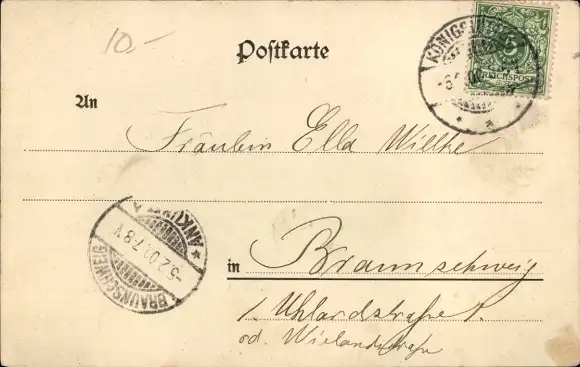 10.-
Postkarte
5
REICHSPOST
An
Fräulein Ella Willke
BRAUNSCHWEIG
-5.2.00.7-8V
* ANKUNFT *
in Braunschweig
1. Uhlandstraße 1.
od. Wielandstraße